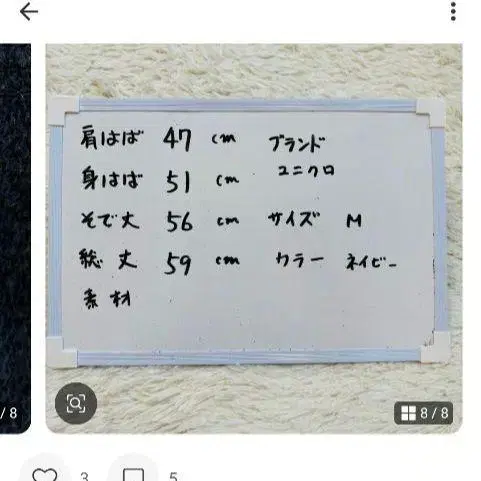 肩はば 47 cm
身はば 51 cm
そで丈 56 cm
総丈 59 cm
素材
ブランド
ユニクロ
サイズ M
カラー ネイビー
/ 8
8 / 8
3
5